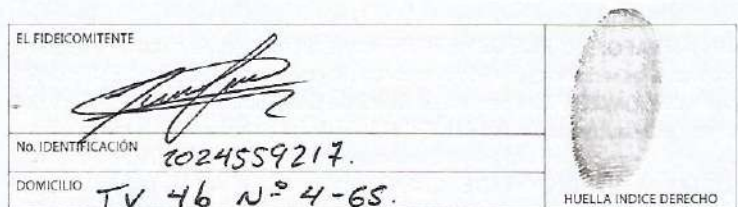 EL FIDEICOMITENTE
No. IDENTIFICACIÓN 1024559217.
DOMICILIO TV 46 Nº 4-65.
HUELLA INDICE DERECHO